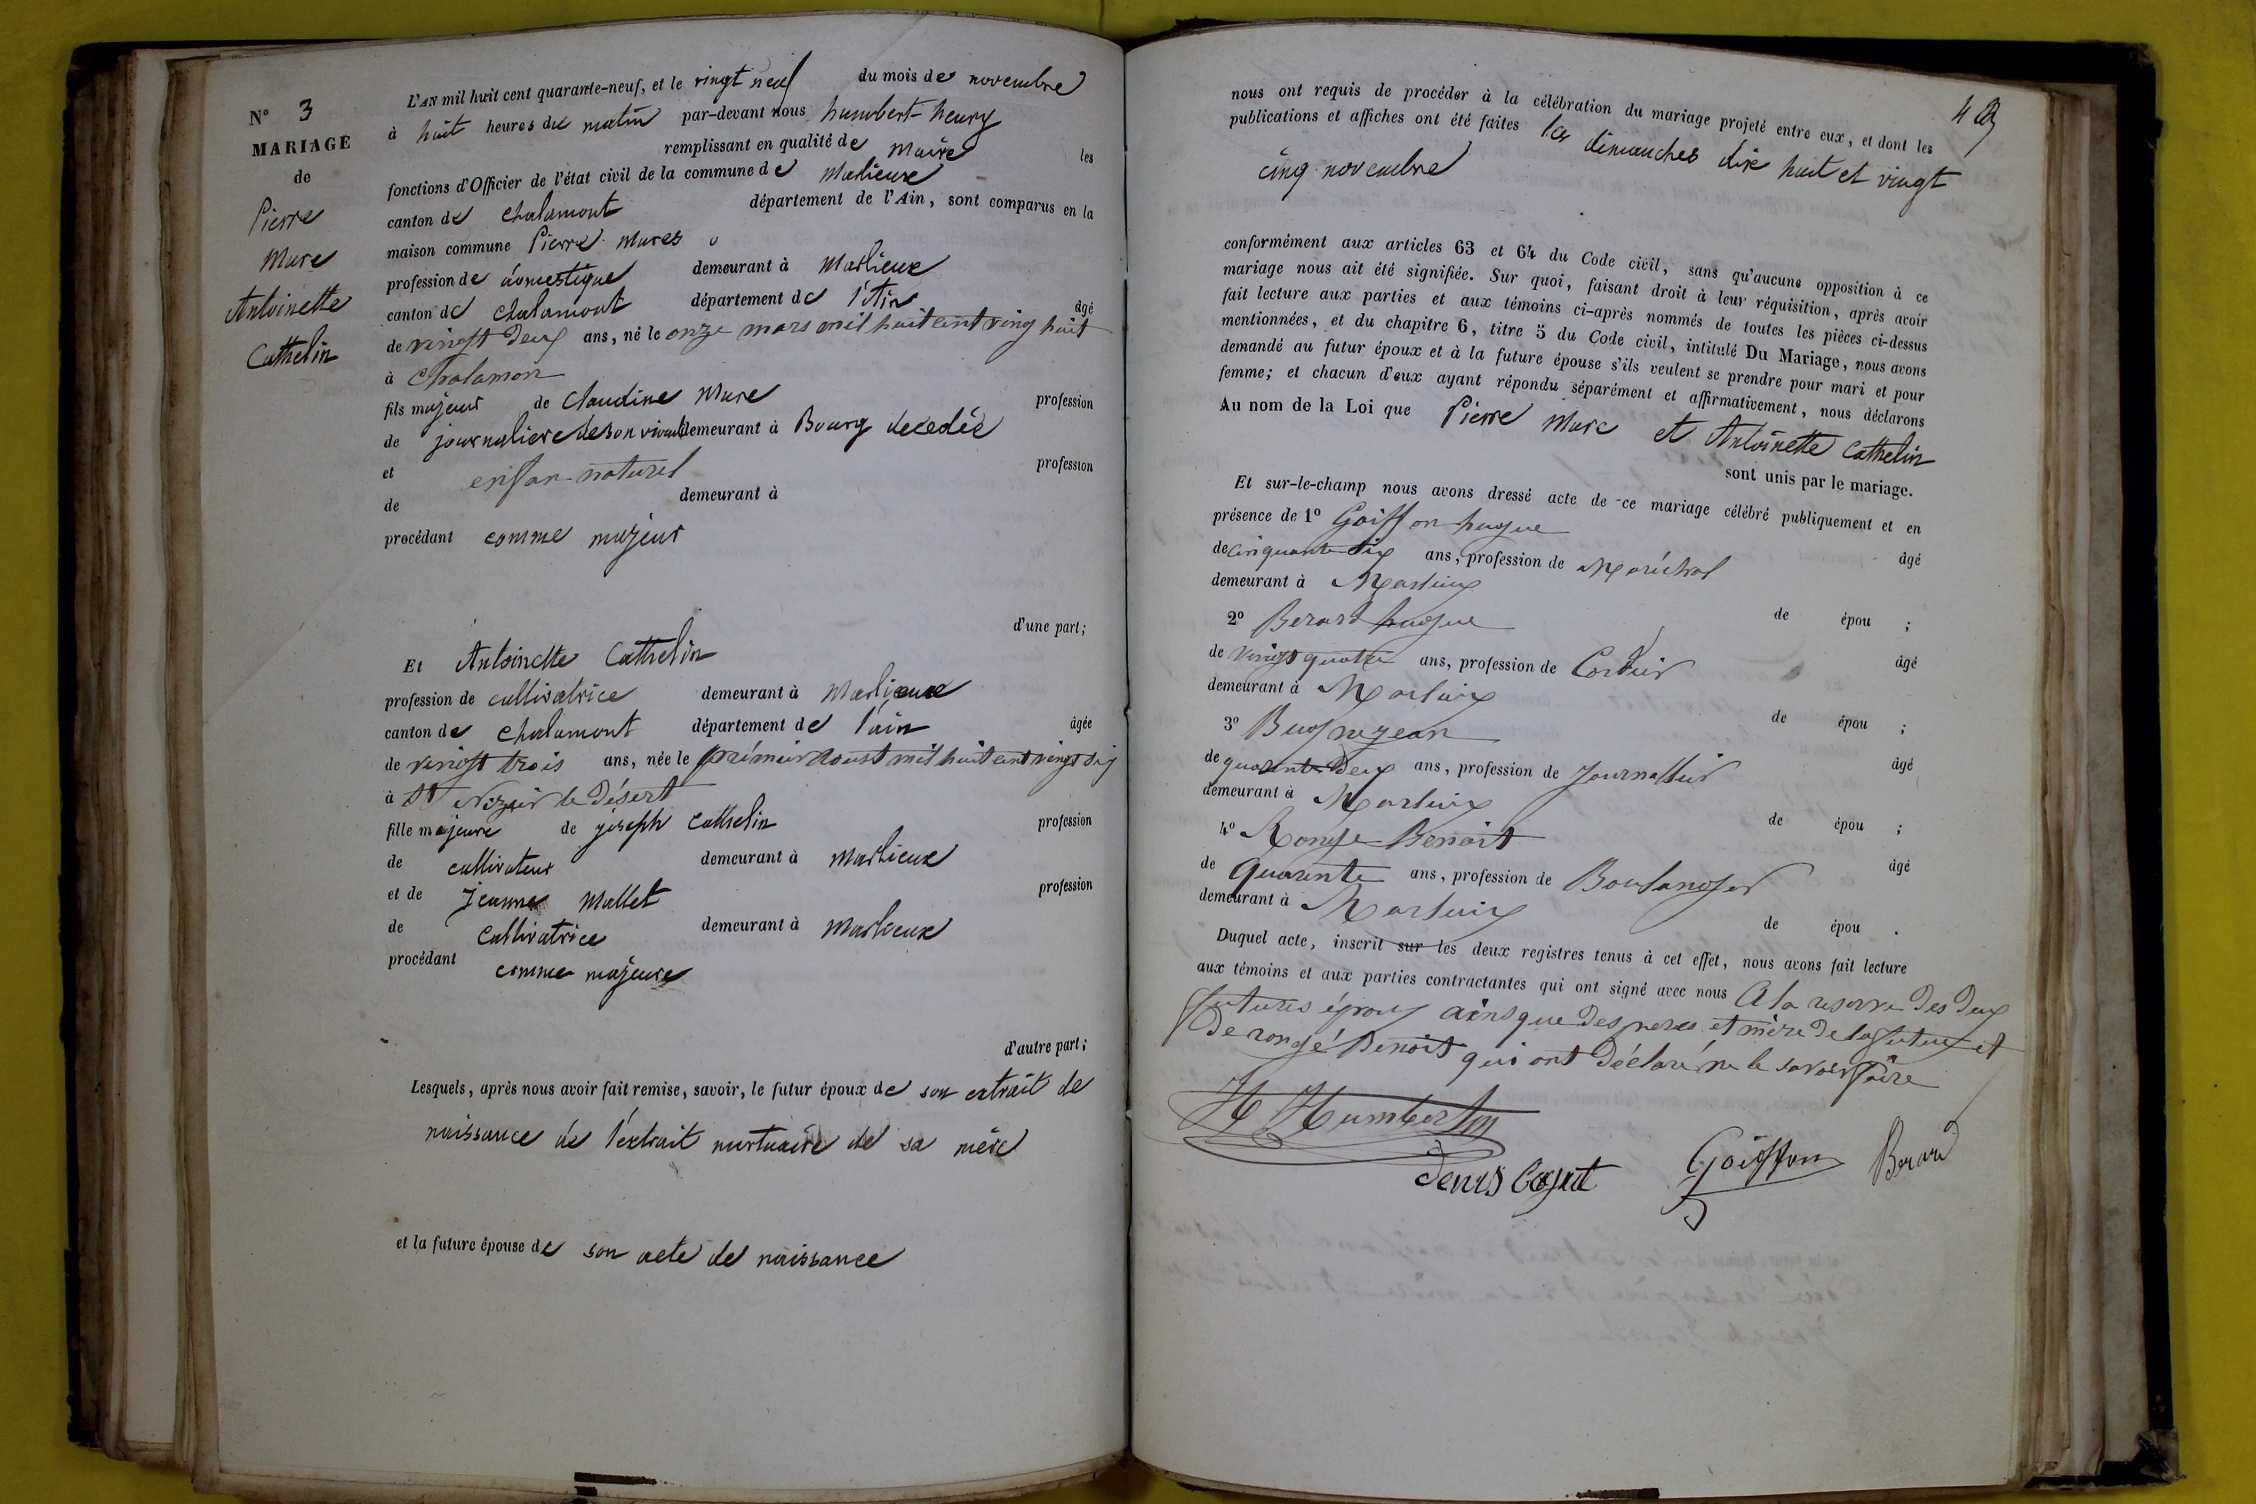 N° 3
MARIAGE
de
Pierre
Marc
Antoinette
Cathelin
L'AN mil huit cent quarante-neuf, et le vingt neuf du mois de novembre
à huit heures du matin par-devant nous humbert henry
remplissant en qualité de maire les
fonctions d'Officier de l'état civil de la commune de Marlieux
canton de chalamont département de l'Ain, sont comparus en la
maison commune Pierre Marc
profession de domestique demeurant à Marlieux
canton de chalamont département de l'Ain âgé
de vingt deux ans, né le onze mars mil huit cent ving huit
à Chalamon
fils majeur de Claudine Marc profession
de journaliere de son vivant demeurant à Bourg decedée
et enfan naturel profession
de demeurant à
procédant comme majeur
d'une part;
Et Antoinette Cathelin
profession de cultivatrice demeurant à Marlieux
canton de chalamont département de l'ain âgée
de vingt trois ans, née le prémier Aoust mil huit cent vingt six
à St Nizier le Désert
fille majeure de joseph Cathelin profession
de cultivateur demeurant à Marlieux
et de Jeanne Mallet profession
de Cultivatrice demeurant à Marlieux
procédant comme majeure
d'autre part;
Lesquels, après nous avoir fait remise, savoir, le futur époux de son extrait de
naissance de l'extrait mortuaire de sa mère
et la future épouse de son acte de naissance
nous ont requis de procéder à la célébration du mariage projeté entre eux, et dont les
publications et affiches ont été faites les dimanches dix huit et vingt
cinq novembre
conformément aux articles 63 et 64 du Code civil, sans qu'aucune opposition à ce
mariage nous ait été signifiée. Sur quoi, faisant droit à leur réquisition, après avoir
fait lecture aux parties et aux témoins ci-après nommés de toutes les pièces ci-dessus
mentionnées, et du chapitre 6, titre 5 du Code civil, intitulé Du Mariage, nous avons
demandé au futur époux et à la future épouse s'ils veulent se prendre pour mari et pour
femme; et chacun d'eux ayant répondu séparément et affirmativement, nous déclarons
Au nom de la Loi que Pierre Marc et Antoinette Cathelin
sont unis par le mariage.
Et sur-le-champ nous avons dressé acte de ce mariage célébré publiquement et en
présence de 1° Goiffon hugue
de cinquante six ans, profession de Maréchal âgé
demeurant à Marlieux
2° Berard hugue de épou ;
de vingt quatre ans, profession de Cordier âgé
demeurant à Marlieux
3° de épou ;
de quarante Deux ans, profession de Journallier âgé
demeurant à Marlieux
4° Ronge Benoit de épou ;
de quarante ans, profession de Boulanger âgé
demeurant à Marlieux
de épou .
Duquel acte, inscrit sur les deux registres tenus à cet effet, nous avons fait lecture
aux témoins et aux parties contractantes qui ont signé avec nous A la reserve Des Deux
futurs époux ainsque Des peres et mère De la future et
De rongé Benoit qui ont Déclaré ne le savoir faire
H Humbert
Goiffon Berard